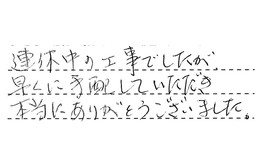 連休中の工事でしたが
早くに手配していただき
本当にありがとうございました。